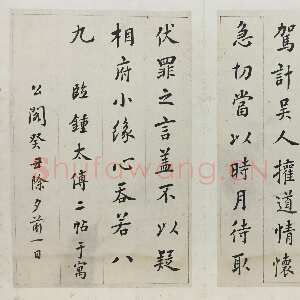 駕計吴人權道情懷
急切當以時月待取
伏罪之言盖不以疑
相府小緣心吞若八
九
臨鍾太傅二帖于寓
公閣癸丑除夕前一日
Shufawang.CN